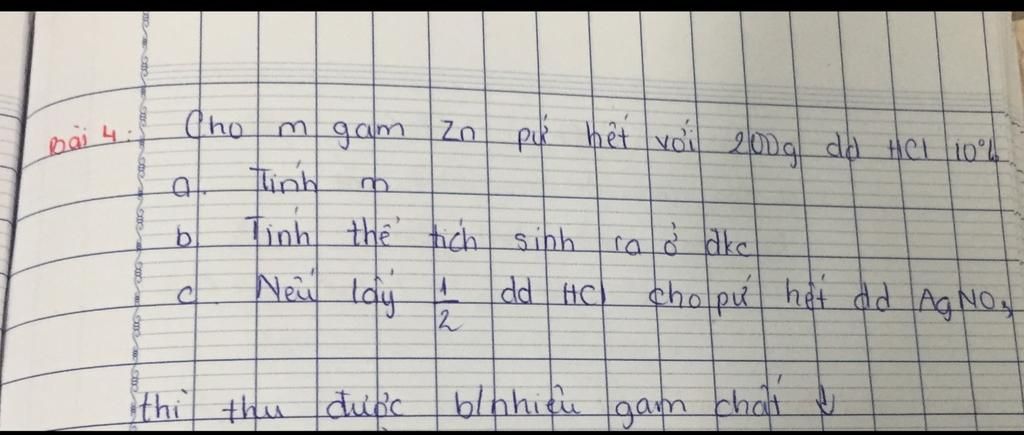 Bài 4: Cho m gam Zn pứ hết với 200g dd HCl 10%
a. Tính m
b Tính thể tích sinh ra ở đkc
c Nếu lấy 1/2 dd HCl cho pứ hết dd AgNO3
thì thu được b/nhiêu gam chất ↓